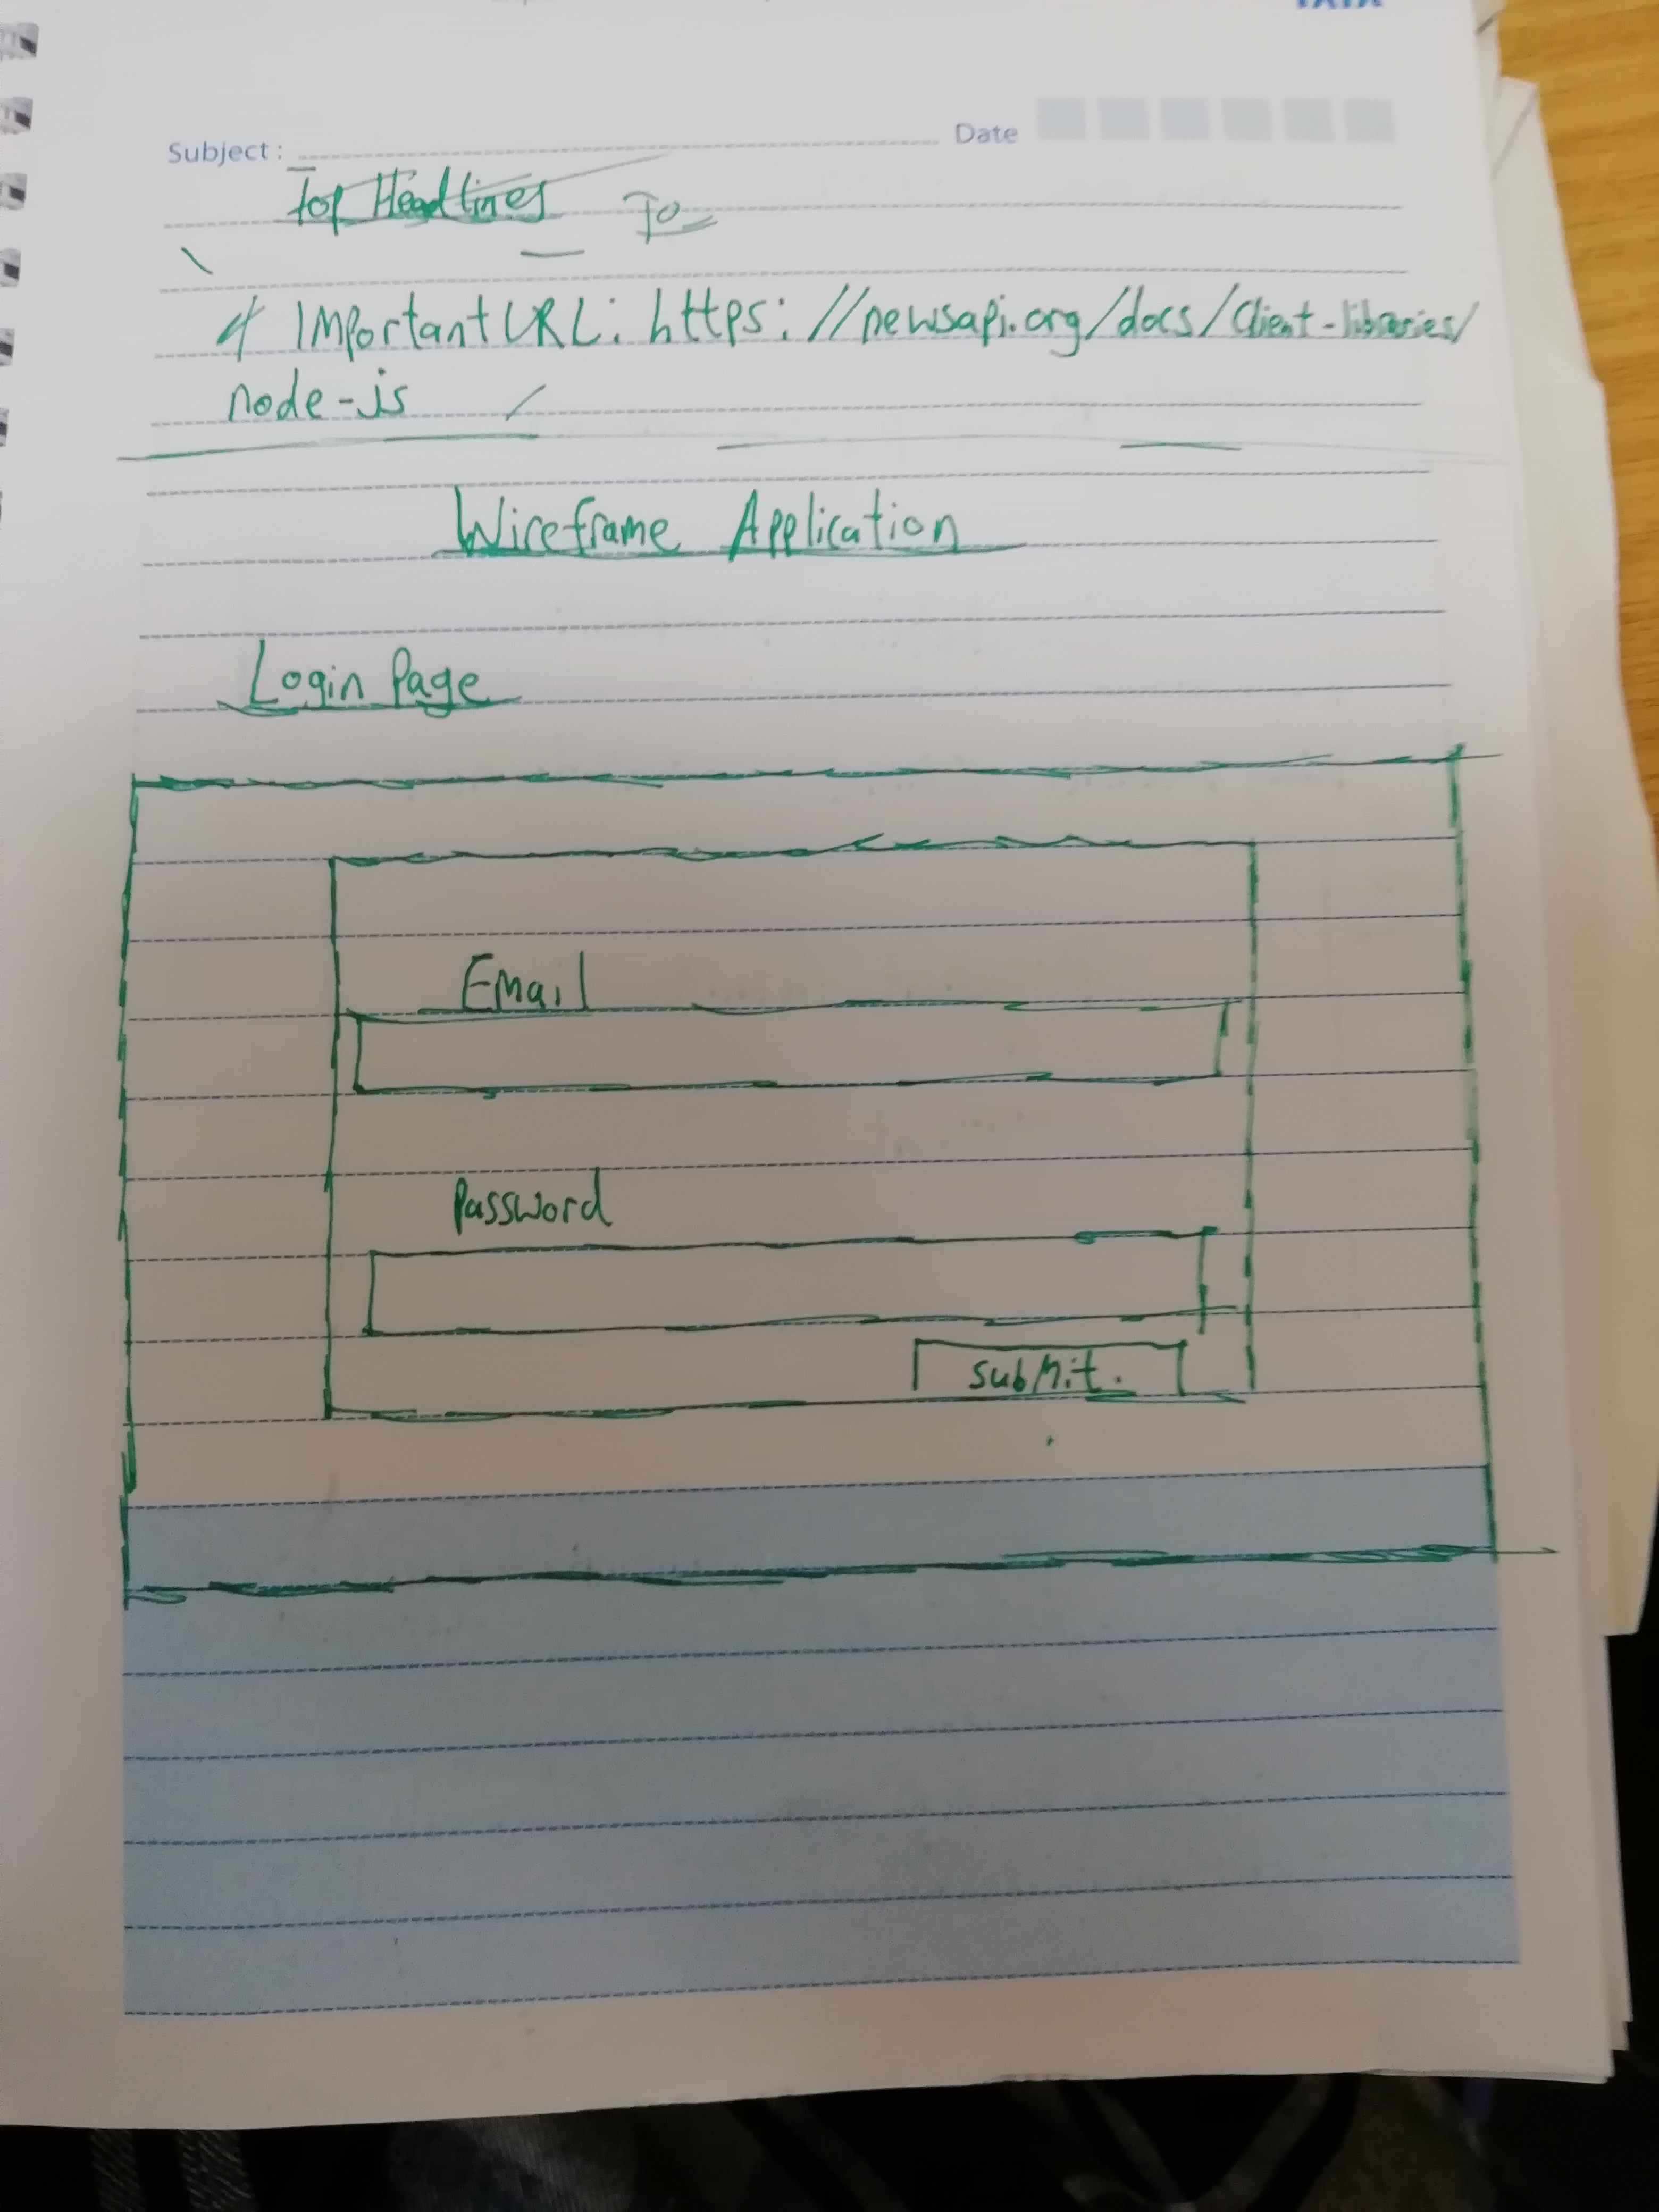 TATA
Subject :
Date
Top Headlines To
4 IMportant URL: https://newsapi.org/docs/Client-libraries/
node-js
Wireframe Application
Login Page
EMail
Password
submit.